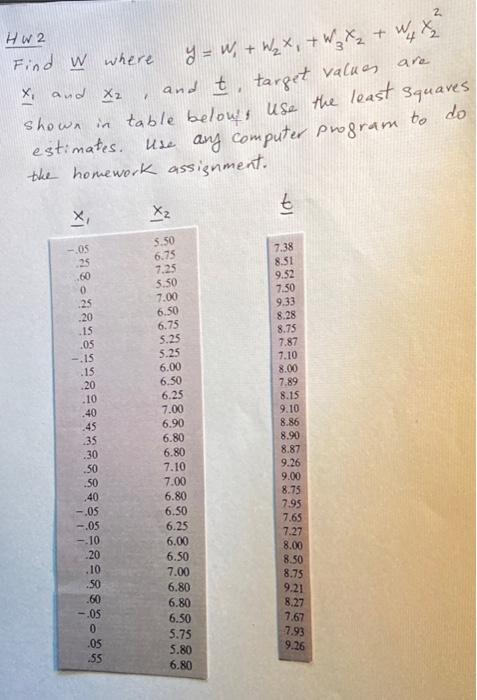 HW2
Find w where y = w₁ + w₂x₁ + w₃x₂ + w₄x₂²
x₁ and x₂ , and t, target values are
shown in table below. Use the least squares
estimates. Use any computer program to do
the homework assignment.
x₁ x₂ t
-.05 5.50 7.38
.25 6.75 8.51
.60 7.25 9.52
0 5.50 7.50
.25 7.00 9.33
.20 6.50 8.28
.15 6.75 8.75
.05 5.25 7.87
-.15 5.25 7.10
.15 6.00 8.00
.20 6.50 7.89
.10 6.25 8.15
.40 7.00 9.10
.45 6.90 8.86
.35 6.80 8.90
.30 6.80 8.87
.50 7.10 9.26
.50 7.00 9.00
.40 6.80 8.75
-.05 6.50 7.95
-.05 6.25 7.65
-.10 6.00 7.27
.20 6.50 8.00
.10 7.00 8.50
.50 6.80 8.75
.60 6.80 9.21
-.05 6.50 8.27
0 5.75 7.67
.05 5.80 7.93
.55 6.80 9.26